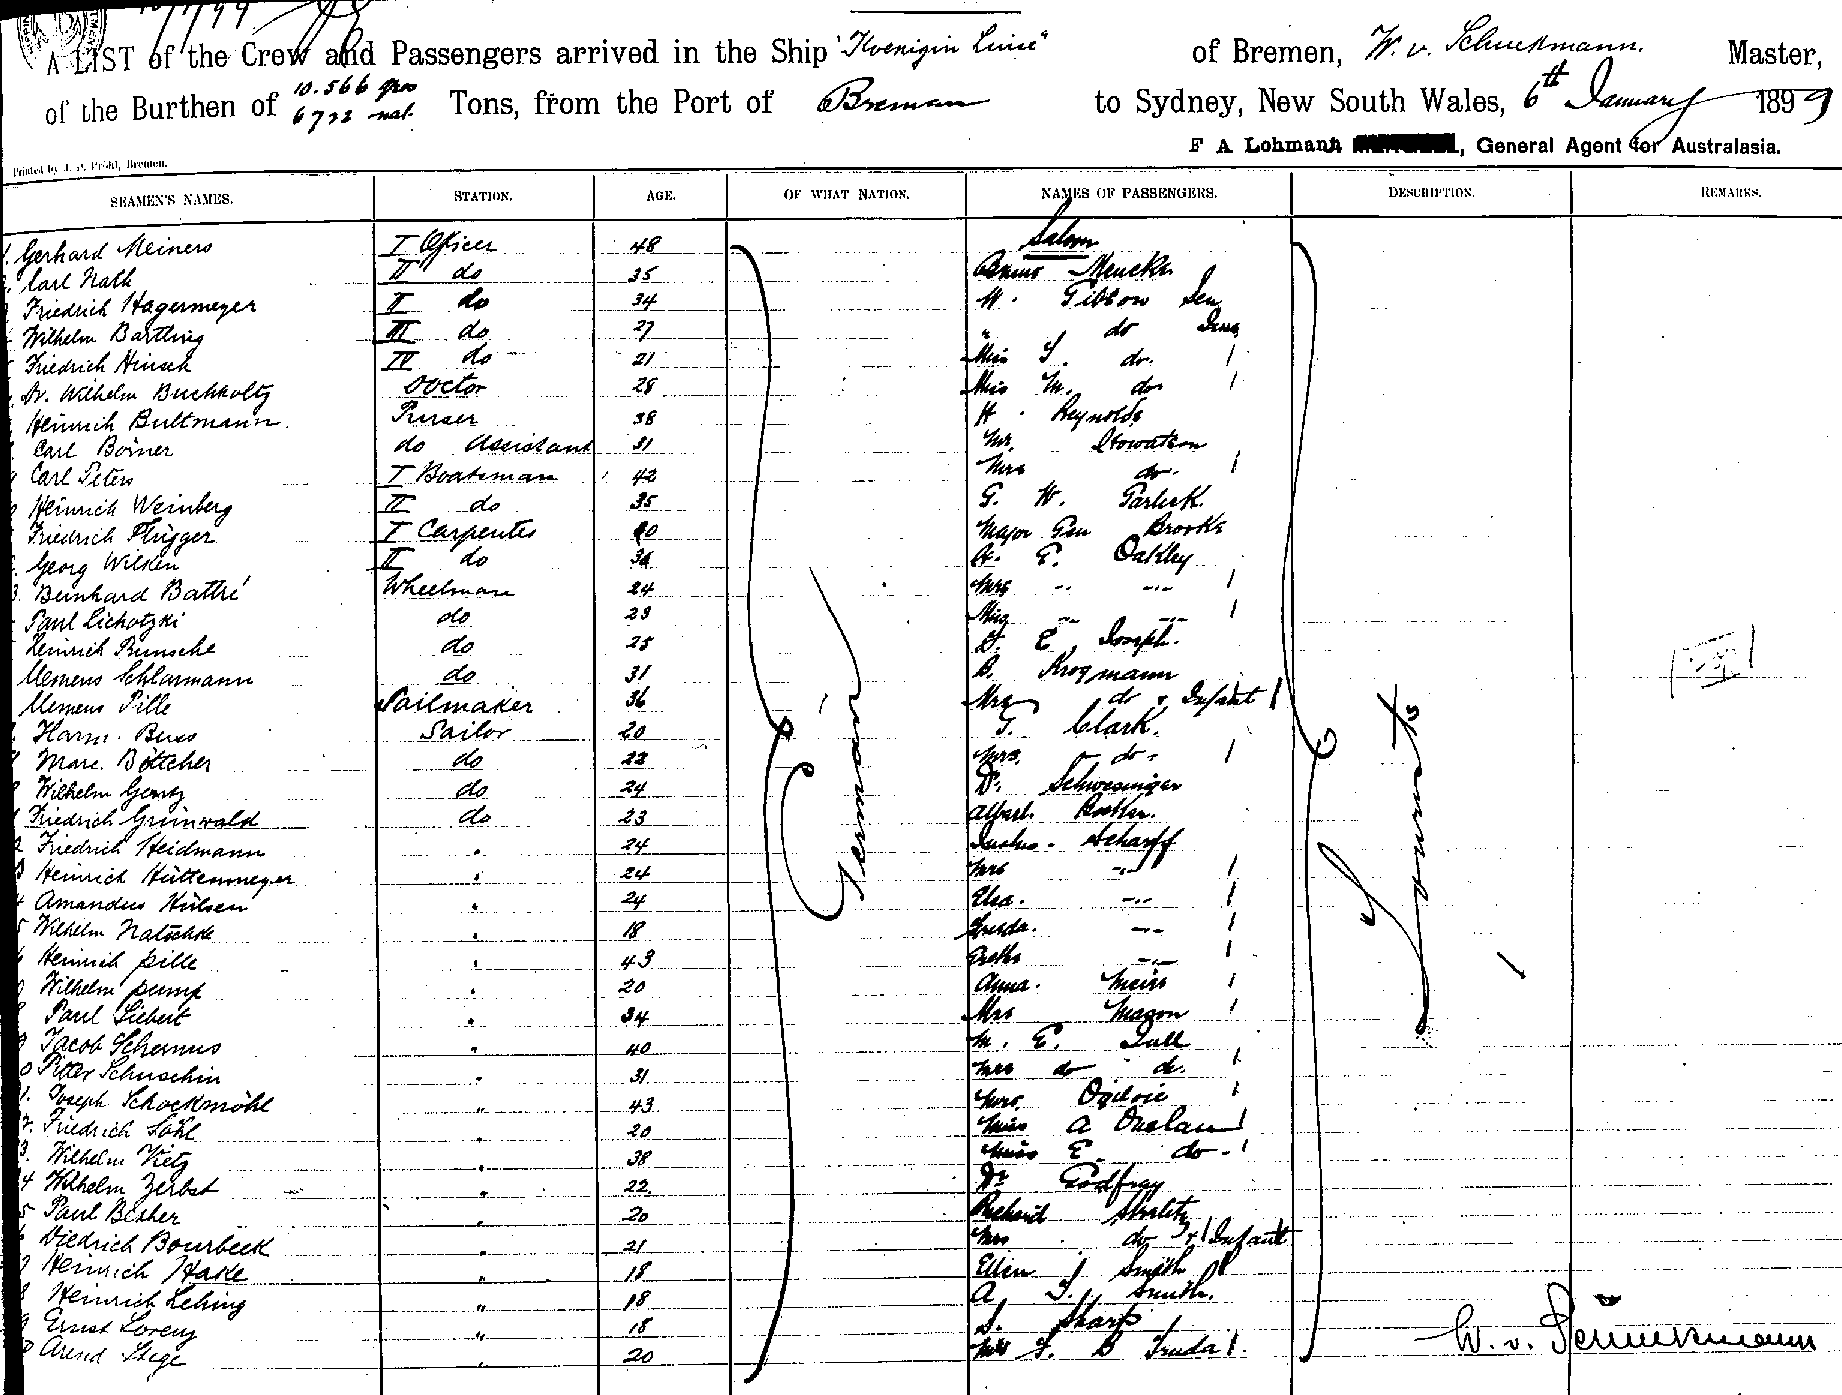 A LIST of the Crew and Passengers arrived in the Ship "Koenigin Luise" of Bremen, W. v. Schuckmann. Master,
of the Burthen of 10.566 gros 6722 nat. Tons, from the Port of Breman to Sydney, New South Wales, 6th January 1899
F A Lohmann, General Agent for Australasia.
Printed by Bremen.
SEAMEN'S NAMES. STATION. AGE. OF WHAT NATION. NAMES OF PASSENGERS. DESCRIPTION. REMARKS.
Saloon
Gerhard Meiners I Officer 48
Carl Nath II do 35 Mencke
Friedrich Hagermeyer II do 34 W. Gibson Sen
Wilhelm Bartling III do 27 " do
Friedrich Hinsch IV do 21 Miss do. 1
Dr. Wilhelm Buchholtz Doctor 28 Miss M. do 1
Heinrich Bultmann. Purser 38 H. Reynolds
Carl Börner do Assistant 31 Mr.
Carl Peters I Boatsman 42 Mrs do. 1
Heinrich Weinberg II do 35 G. W.
Friedrich Flügger I Carpenter 40 Major Gen Brooks
Georg Wilken II do A. E. Oakley
Bernhard Battré Wheelman 24 Mrs " " 1
Paul Lichotzki do 23 Miss " " 1
Heinrich Runsche do 25 D. E. Joseph.
Clemens Schlarmann do 31 B. Krogmann
Clemens Pille Sailmaker 36 Mrs do & Infant 1
Harm. Buss Sailor 20 T. Clark.
Marc. Böttcher do 22 Mrs. do. 1
Wilhelm Gentz do 24 Dr. Schwesinger
Friedrich Grünwald do 23 Albert
Friedrich Heidmann " 24 Scharff
Heinrich Hüttenmeyer " 24 Mrs " 1
Amandus Hülsen " 24 Elsa. " 1
Wilhelm Natschke " 18 " 1
Heinrich Pille " 43 " 1
Wilhelm Pump " 20 Anna. 1
Paul Siebert " 34 Mrs Mason 1
Jacob Schernus " 40 M. E.
Peter Schuschin " 31 Mrs do do. 1
Joseph Schockmöhl " 43 Mrs. Ogilvie 1
Friedrich Sohl " 20 Miss A Onslau 1
Wilhelm Vietz " 38 Miss E. do. 1
Wilhelm Zerbst " 22 Dr Godfrey
Paul Becher " 20 Richard
Diedrich Bourbeck " 21 Mrs do & 1 Infant
Heinrich Hake " 18 Ellen J Smith 1
Heinrich Lehing " 18 A J. Smith.
Ernst Lorenz " 18 S. Sharp
Arend Stege " 20 F. B 1.
Germany
Tourists
W. v. Schuckmann